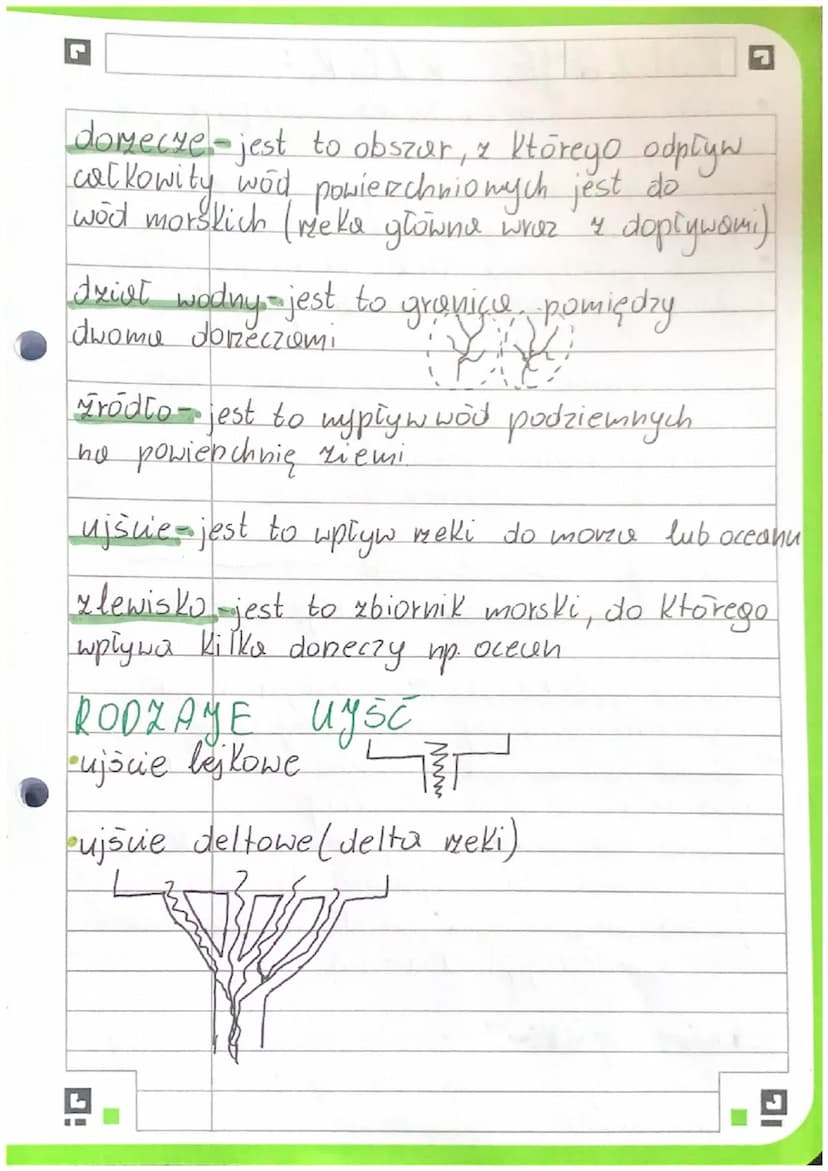 dorzecze - jest to obszar, z którego odpływ
całkowity wód powierzchniowych jest do
wód morskich (rzeka główna wraz z dopływami)
dział wodny - jest to granica pomiędzy
dwoma dorzeczami
źródło - jest to wypływ wód podziemnych
na powierzchnię ziemi
ujście - jest to wpływ rzeki do morza lub oceanu
zlewisko - jest to zbiornik morski, do którego
wpływa kilka dorzeczy np. ocean
RODZAJE UJŚĆ
• ujście lejkowe
• ujście deltowe (delta rzeki)